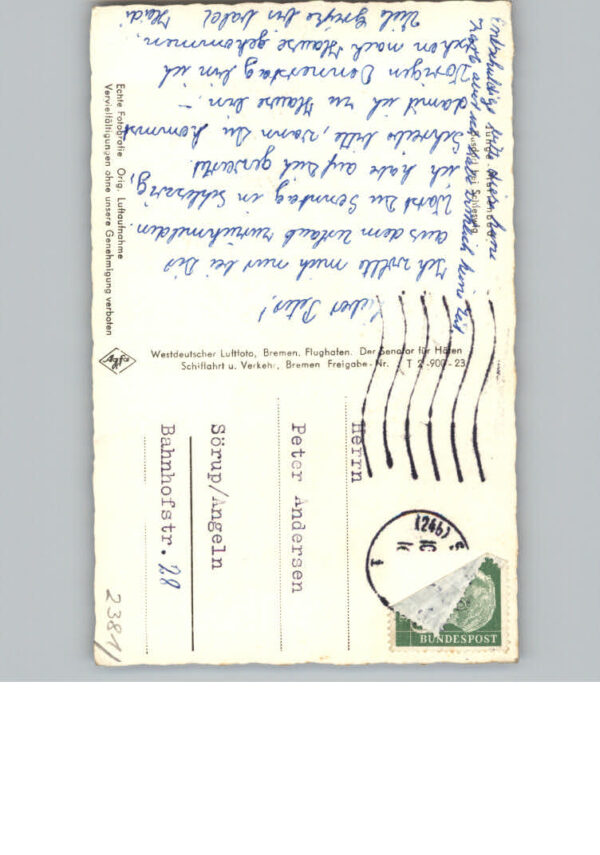 Lieber Peter!
Ich wollte mich nur bei Dir
aus dem Urlaub zurückmelden.
Warst Du Sonntag in Schleswig,
ich habe auf Dich gewartet.
Schreibe bitte, wann Du kommst
damit ich zu Hause bin. –
Vorigen Donnerstag bin ich
schon nach Hause gekommen.
Viele Grüße bis bald Heidi
Entschuldige bitte diese
Karte aber wirklich keine Zeit
bei Schleswig
Echte Fotografie Orig. Luftaufnahme
Vervielfältigungen ohne unsere Genehmigung verboten
Agfa
Westdeutscher Luftfoto, Bremen, Flughafen. Der Senator für Häfen
Schiffahrt u. Verkehr, Bremen Freigabe-Nr. T 2-900-23
Herrn
Peter Andersen
Sörup/Angeln
Bahnhofstr. 28
(24b)
BUNDESPOST
2381/